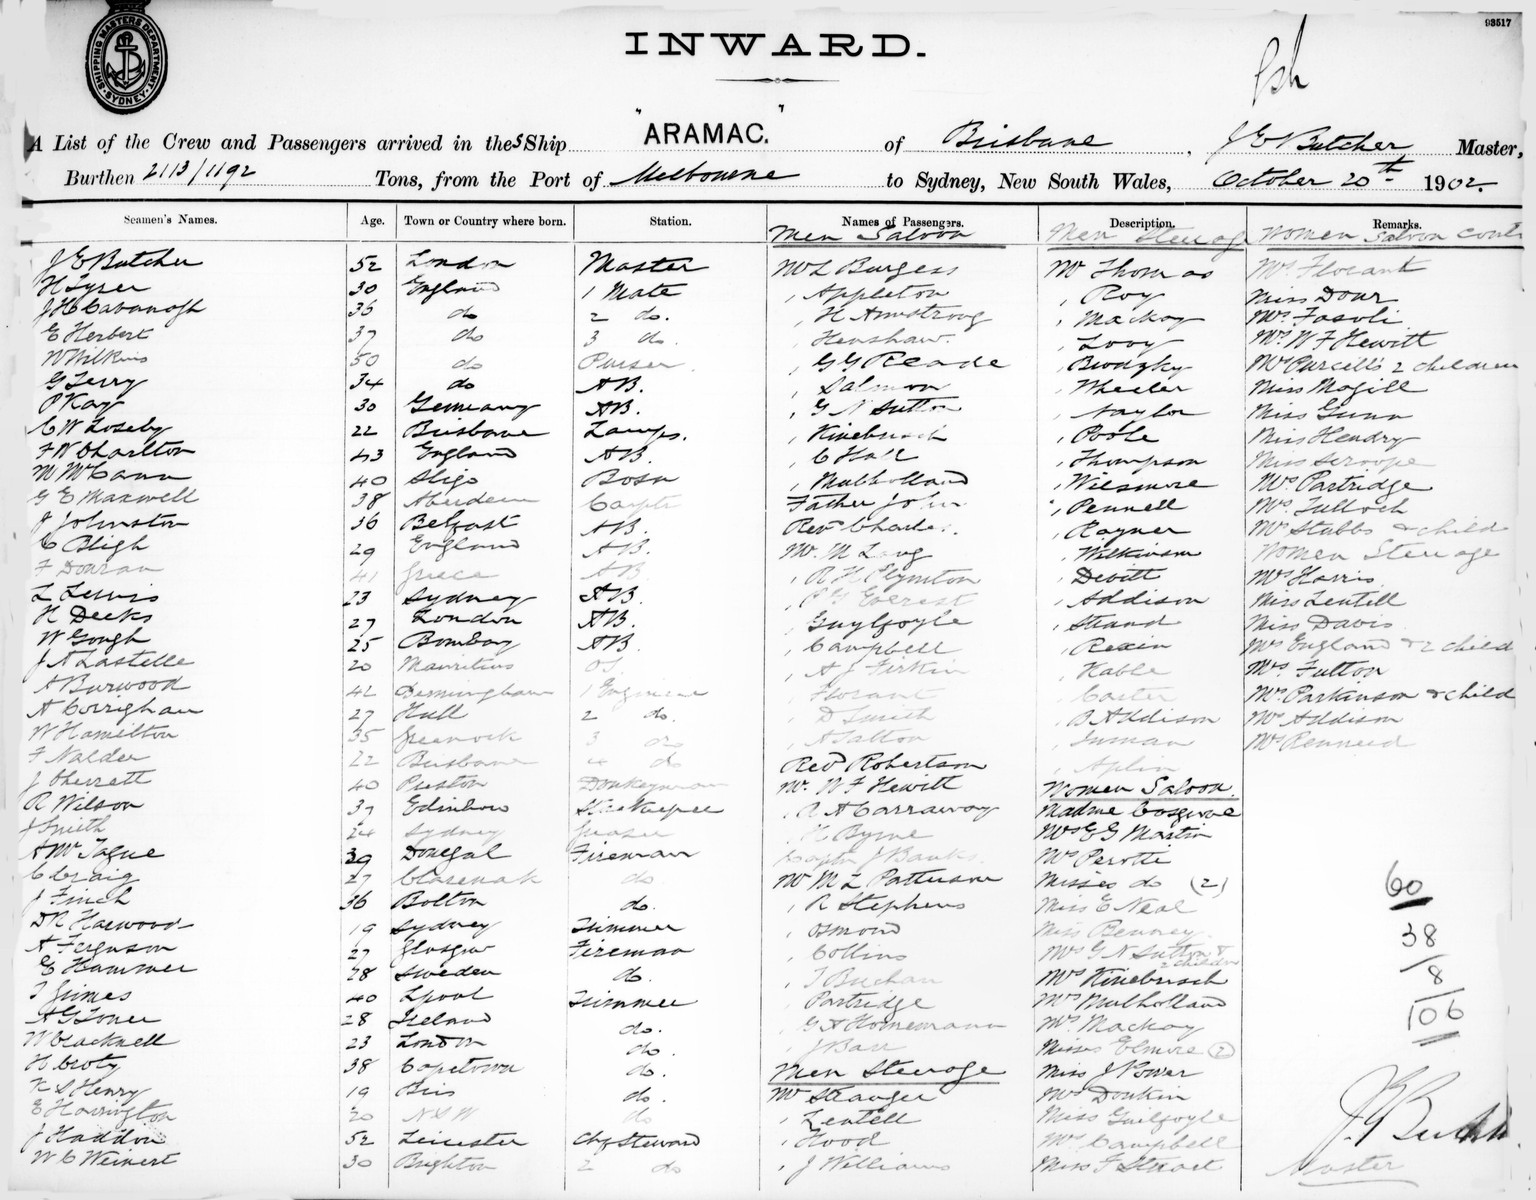 93517
SHIPPING MASTERS DEPARTMENT
SYDNEY
INWARD.
A List of the Crew and Passengers arrived in the S Ship "ARAMAC." of Brisbane, J E Butcher Master,
Burthen 2113/1192 Tons, from the Port of Melbourne to Sydney, New South Wales, October 20th 1902.
Seamen's Names. Age. Town or Country where born. Station. Names of Passengers. Description. Remarks.
J E Butcher 52 London Master
H Tyrer 30 England 1 Mate
J H Cavanagh 35 do 2 do.
E Herbert 37 do 3 do.
W Wilkins 50 do Purser
G Terry 34 do AB.
P Kay 30 Germany AB.
C W Loseby 22 Brisbane Lamps.
F W Charlton 43 England AB.
M McCann 40 Sligo Bosn
G E Maxwell 38 Aberdeen Carptr
J Johnston 36 Belfast AB.
C Bligh 29 England AB.
F Douran 41 Greece AB
L Lewis 23 Sydney AB.
H Deeks 27 London AB.
W Gough 25 Bombay AB.
J A Lastelle 20 Mauritius OS
A Burwood 42 Birmingham 1 Engineer
A Corrighan 27 Hull 2 do.
W Hamilton 35 Greenock 3 do
F Nalder 22 Brisbane 4 do
J Cherrett 40 Preston Donkeyman
R Wilson 37 Edinboro Storekeeper
J Smith 24 Sydney Greaser
A McTague 39 Donegal Fireman
C Craig 27 do
J Finch 36 Bolton do.
D R Harwood 19 Sydney Trimmer
A Ferguson 27 Glasgow Fireman
E Hammer 28 Sweden do.
T Grimes 40 Lpool Trimmer
A G Toner 28 Ireland do.
W Cracknell 23 London do.
H Croty 38 Capetown do.
K S Henry 19 Bris do.
E Harrington 20 N S W do
J Haddon 52 Leicester Chf Steward
W C Weinert 30 Brighton 2 do
Men Saloon
Mr L Burgess
, Appleton
, H Armstrong
, Henshaw.
, G G Reade
, Salmon
, G N Sutton
, Kinebusch
, C Hall
, Mulholland
Father John
Rev Charles.
Mr. M Lang
, R H Plymton
, P G Everest
, Guylfoyle
, Campbell
, A J Firkin
, Florant
, D Smith
, A Fatton
Revd Robertson
Mr. W F Hewitt
, R A Carraway
, H Byrne
Captn J Banks.
Mr M L Patterson
, R Stephens
, Osmond
, Collins
, T Buchan
, Partridge
, G A Hornemann
, J Barr
Men Steerage
Mr Stranger
, Lentell
, Hood
, J Williams
Men Steerage
Mr Thomas
, Roy
, Mackay
, Looy
, Brodzky
, Wheeler
, Naylor
, Poole
, Thompson
, Wilsmore
, Pennell
, Rayner
, Wilkinson
, Devitt
, Addison
, Strand
, Rexin
, Hable
, Carter
, B Addison
, Inman
, Aplin
Women Saloon.
Madme Cosgrove
Mrs E G Martin
Mrs Perotti
Misses do (2)
Miss E Neal
Miss Benney.
Mrs G N Sutton & 2 children
Mrs Kinebusch
Mrs Mulholland
Mrs Mackay
Misses Elmore (2)
Miss J Power
Mrs Donkin
Miss Guilfoyle
Mrs Campbell
Miss F Stuart
Women Saloon cont
Mrs Florant
Miss Dour
Mrs Fasoli
Mrs W F Hewitt
Mrs Purcell & 2 children
Miss Magill
Miss Gunn
Miss Hendry
Miss Scroope
Mrs Partridge
Mrs Tulloch
Mrs Stubbs & child
Women Steerage
Mrs Harris
Miss Lentell
Miss Davis
Mrs England & 2 child
Mrs Fulton
Mrs Parkinson & child
Mrs Addison
60
38
8
106
J E Butcher
Master